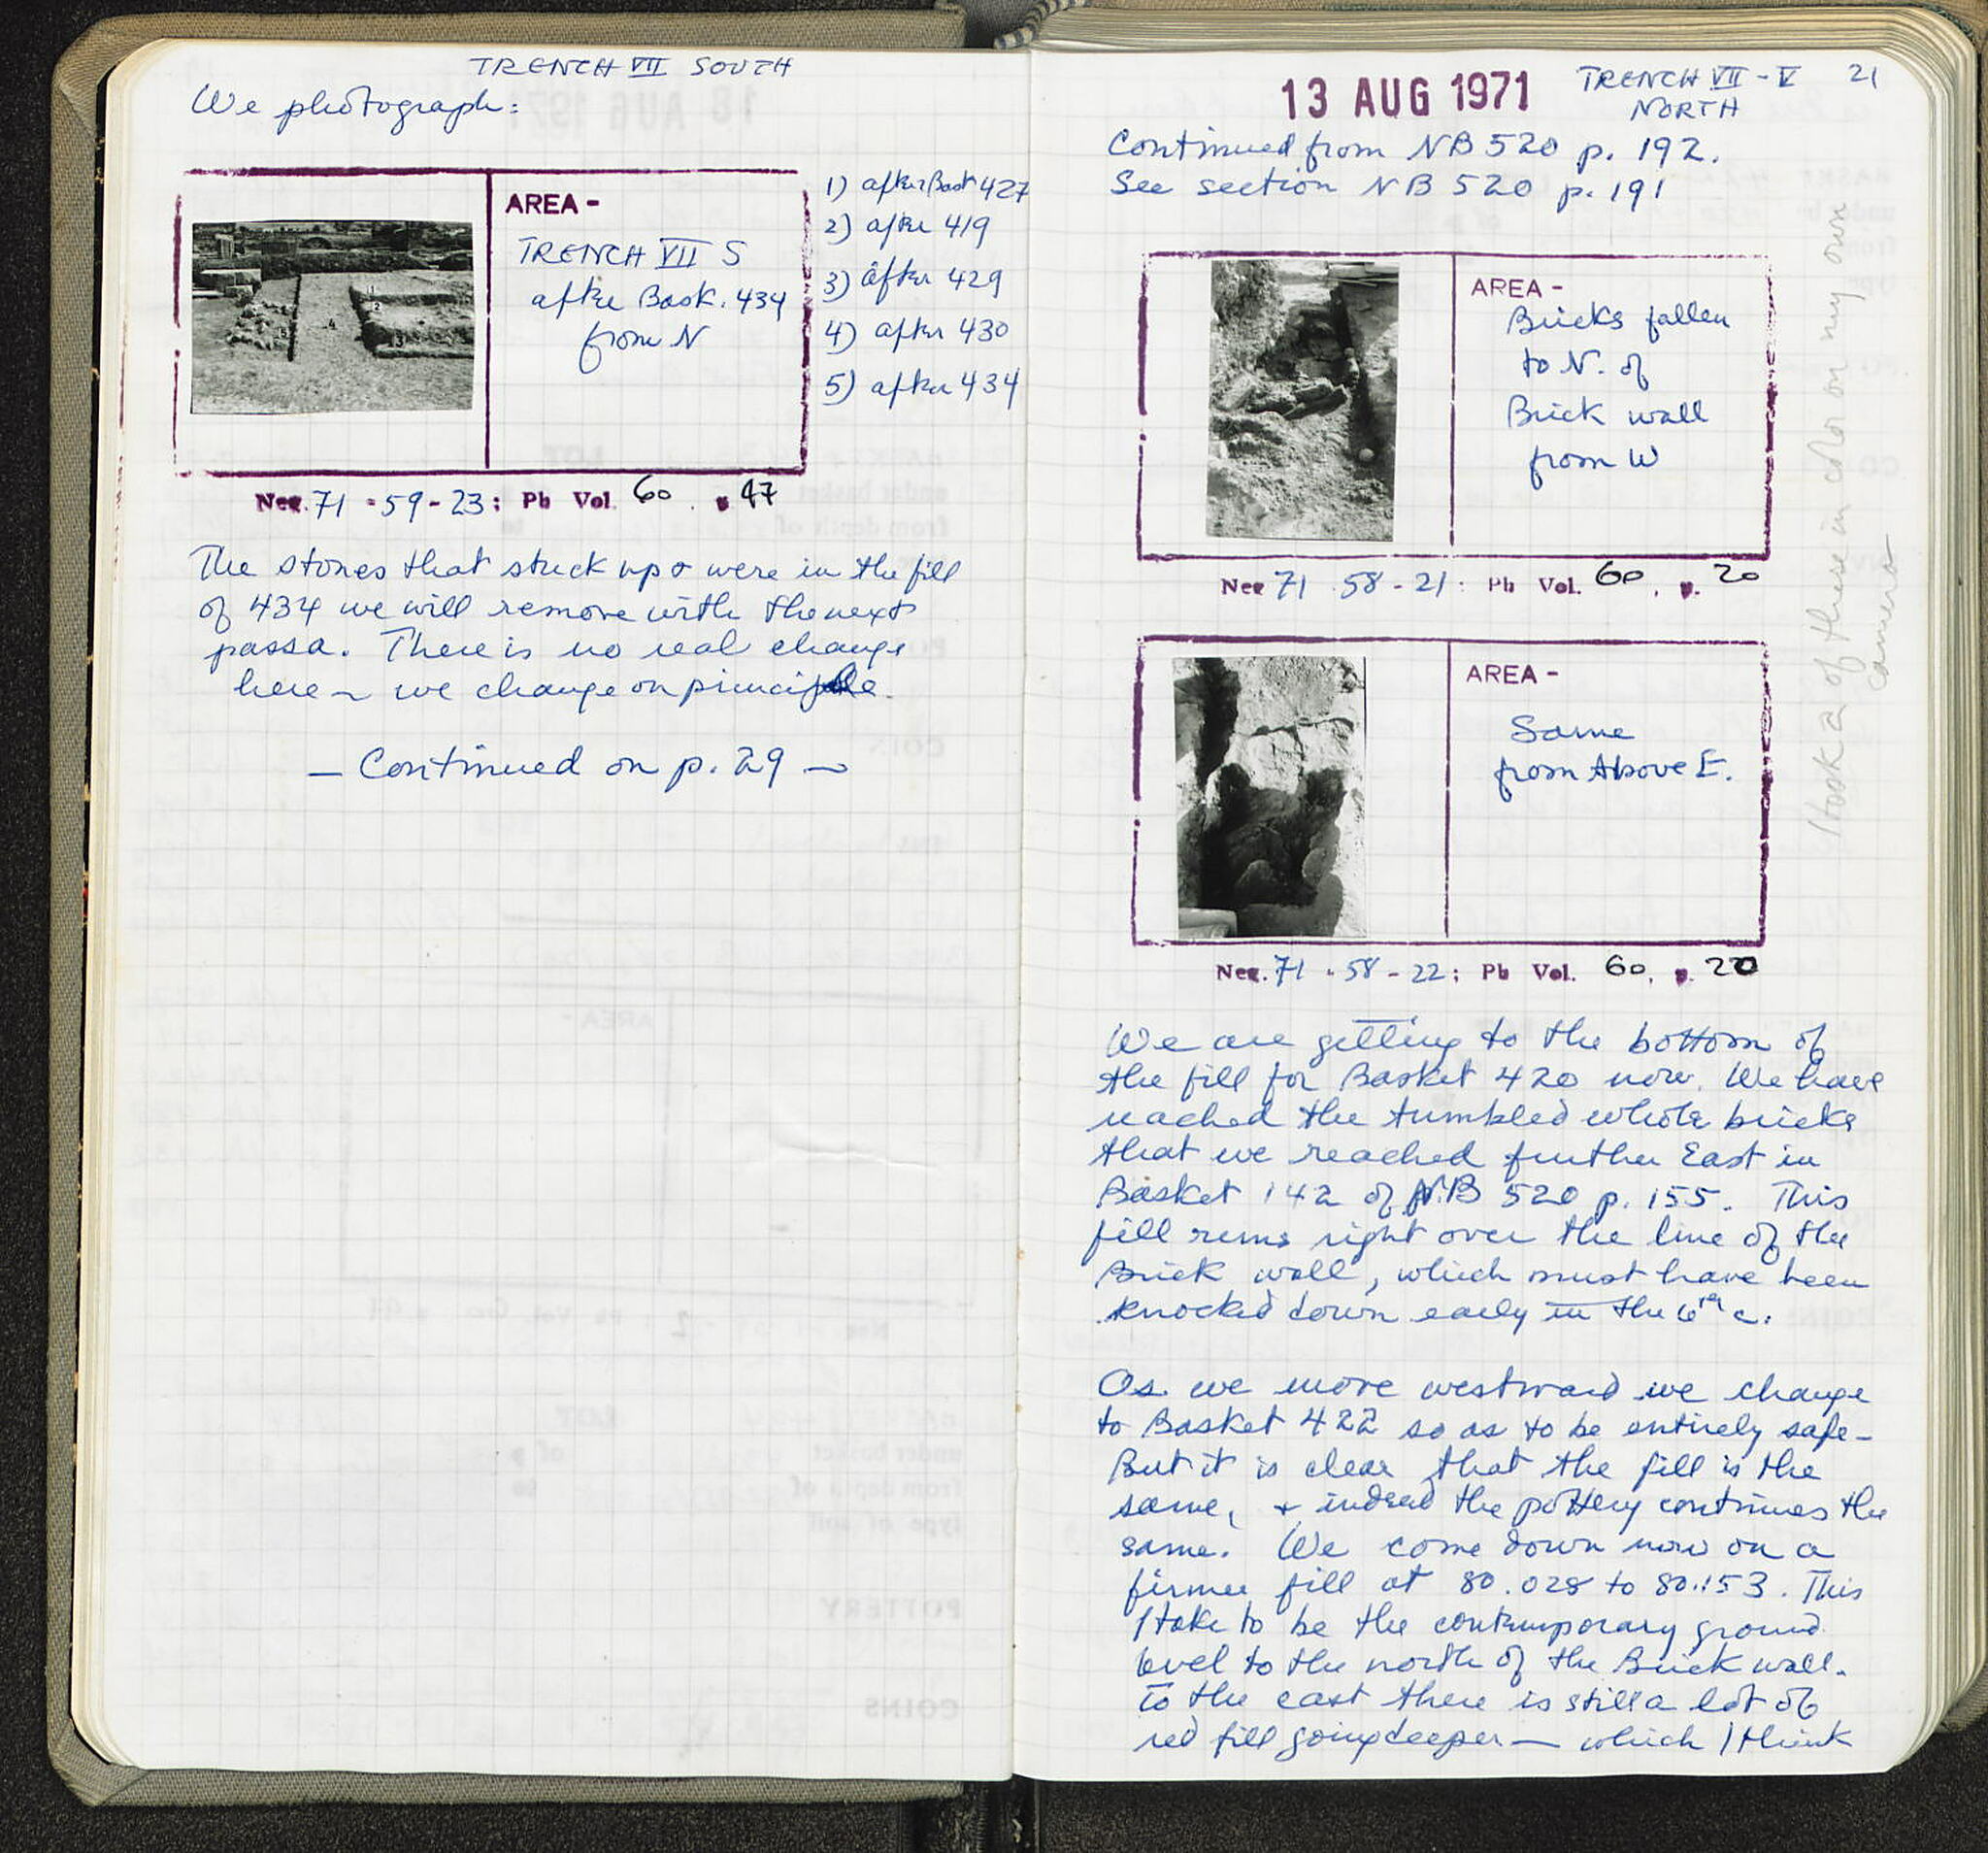 TRENCH VII SOUTH
We photograph:
AREA -
TRENCH VII S
after Bask. 434
from N
1) after Bask 427
2) after 419
3) after 429
4) after 430
5) after 434
Neg. 71 - 59 - 23; Ph Vol. 60. p 47
The stones that stuck up & were in the fill
of 434 we will remove with the next
passa. There is no real change
here ~ we change on principle.
— Continued on p. 29 —
13 AUG 1971
TRENCH VII - V 21
NORTH
Continued from NB 520 p. 192.
See section NB 520 p. 191
AREA -
Bricks fallen
to N. of
Brick wall
from W
Neg 71 58 - 21: Ph Vol. 60, p. 20
AREA -
Same
from Above E.
Neg. 71 - 58 - 22; Ph Vol. 60, p. 20
I took 2 of these in color on my own
camera
We are getting to the bottom of
the fill for Basket 420 now. We have
reached the tumbled whole bricks
that we reached further East in
Basket 142 of NB 520 p. 155. This
fill runs right over the line of the
Brick wall, which must have been
knocked down early in the 6th c.
As we move westward we change
to Basket 422 so as to be entirely safe -
But it is clear that the fill is the
same, & indeed the pottery continues the
same. We come down now on a
firmer fill at 80.028 to 80.153. This
I take to be the contemporary ground
level to the north of the Brick wall.
To the east there is still a lot of
red fill going deeper — which I think